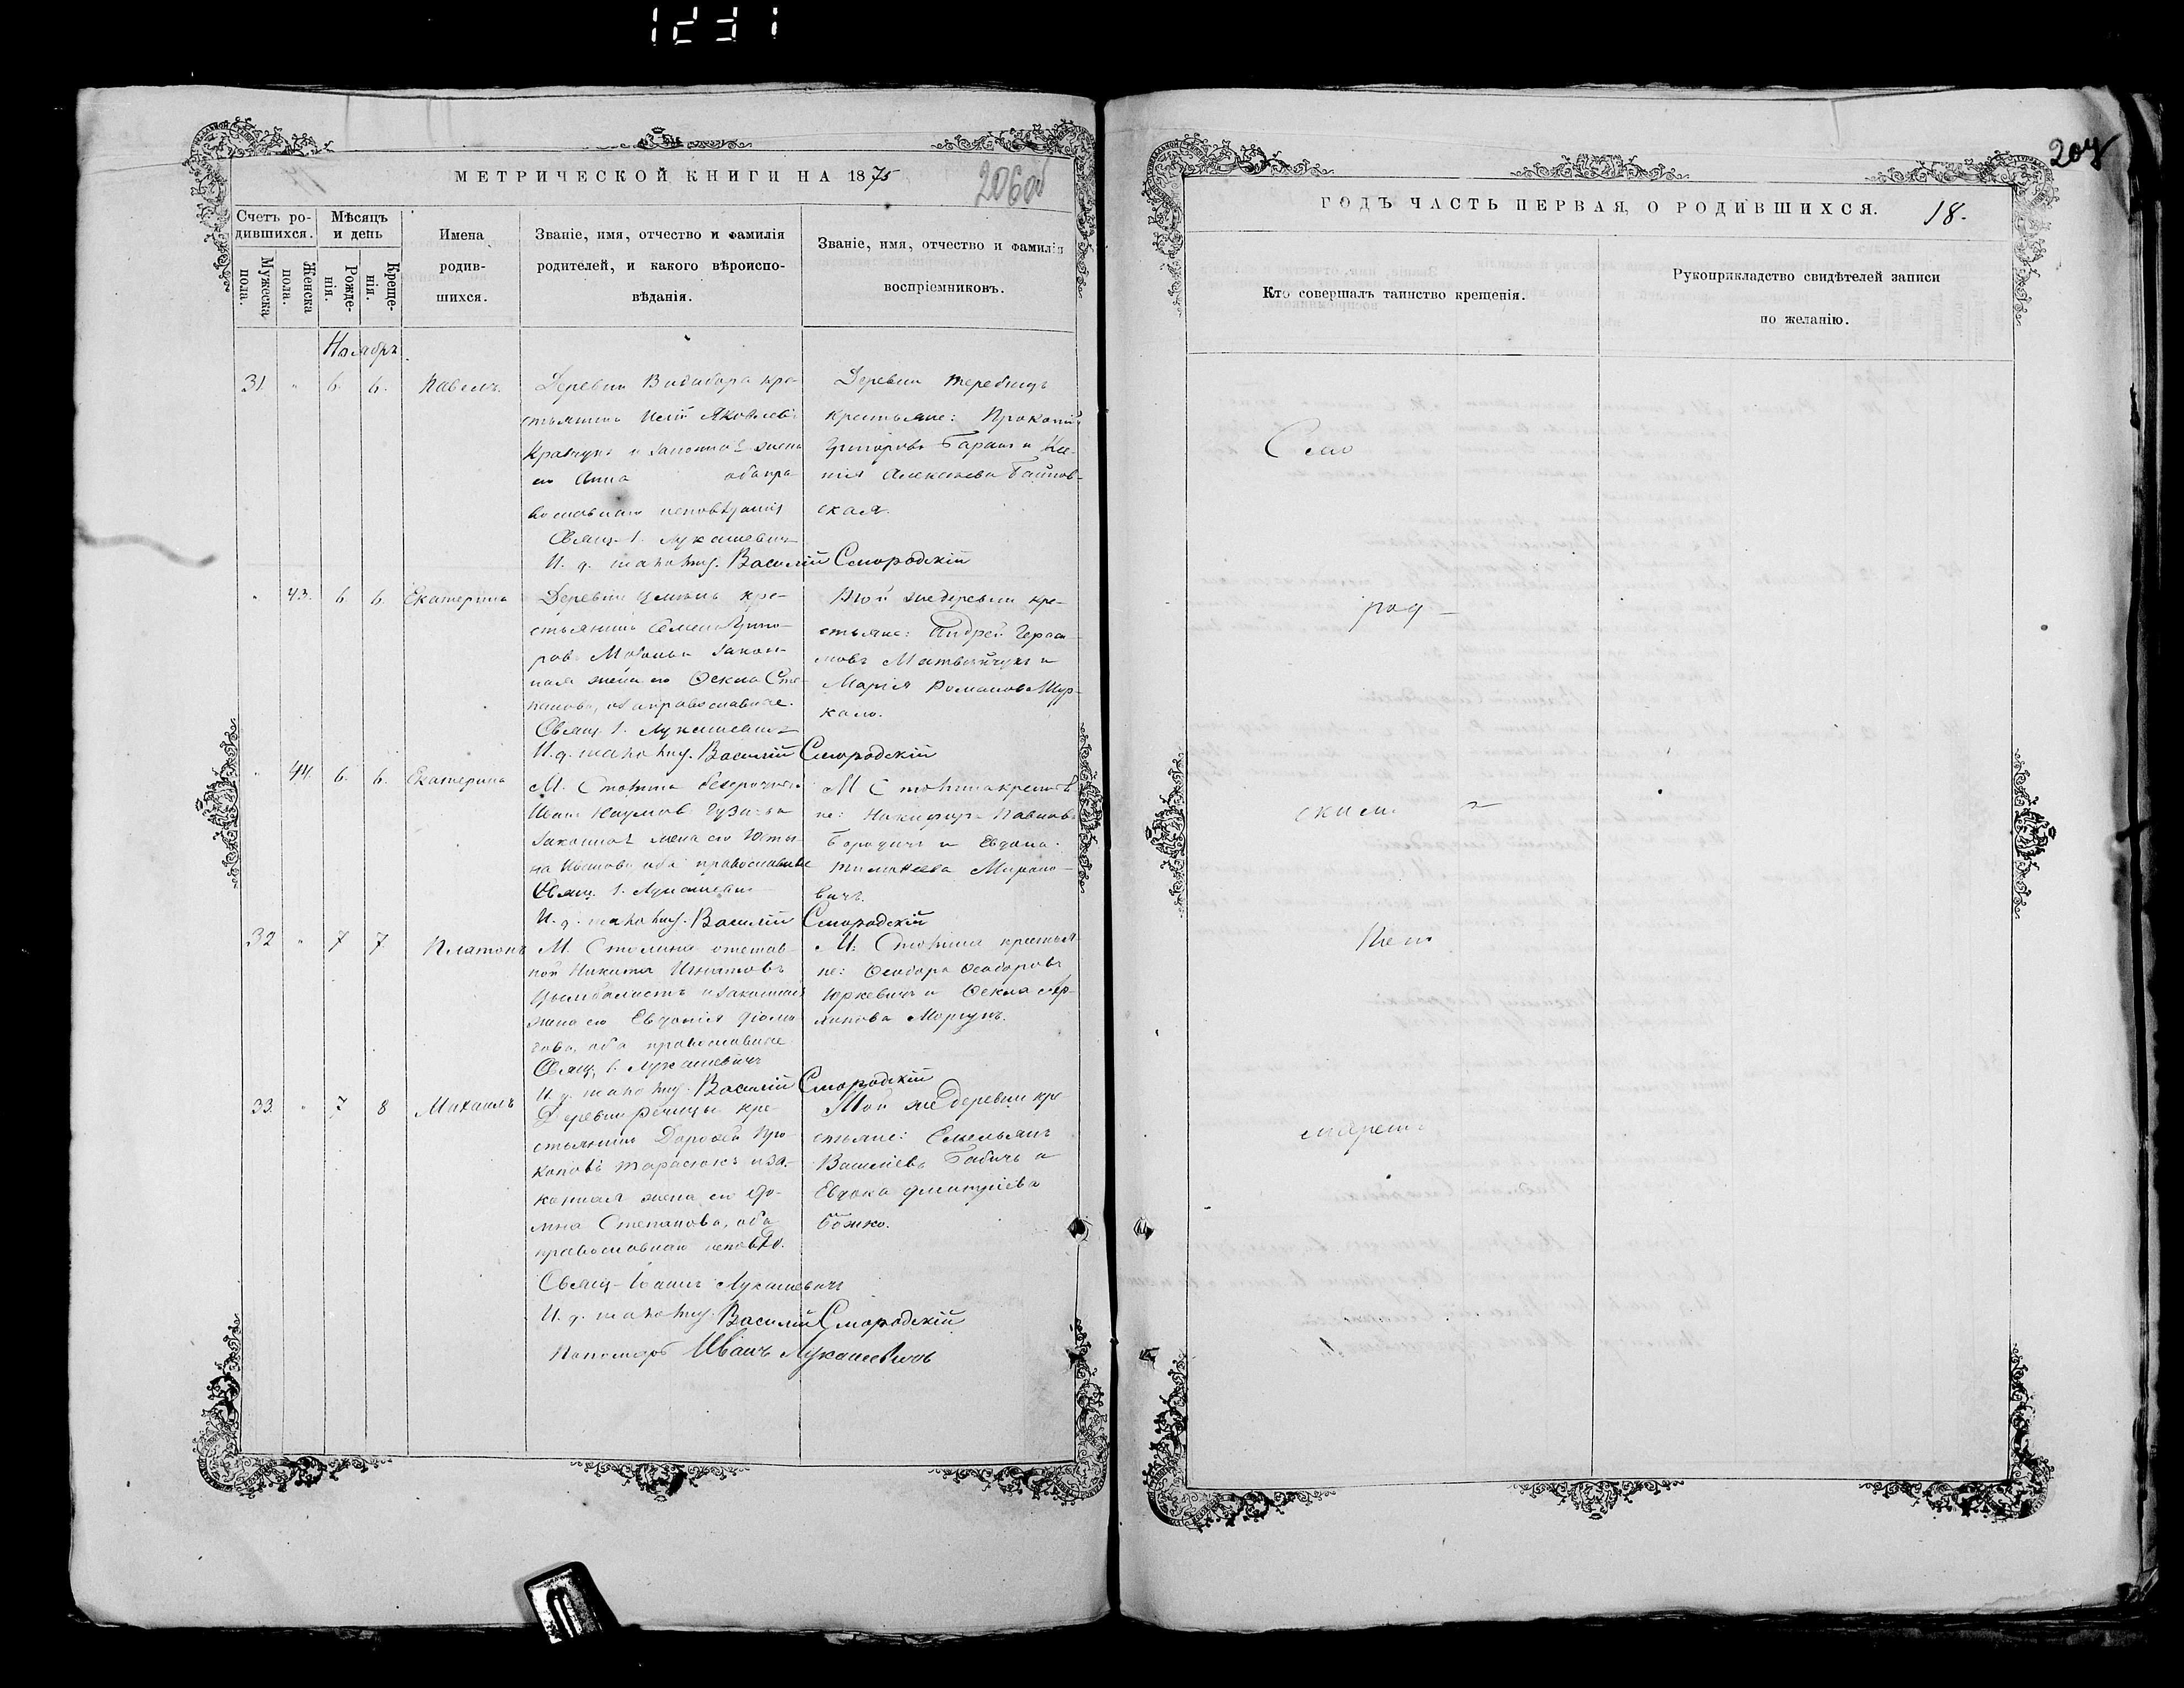 МЕТРИЧЕСКОЙ КНИГИ НА 1875
206об
Счетъ ро-
дившихся.
Мужеска
пола.
Женска
пола.
Мѣсяцъ
и день
Рожде-
нія.
Креще-
нія.
Имена
родив-
шихся.
Званіе, имя, отчество и фамилія
родителей, и какого вѣроиспо-
вѣданія.
Званіе, имя, отчество и фамилія
воспріемниковъ.
Ноябрь.
31 " 6. 6. Павелъ.
Деревни Видибора кре-
стьянинъ Яковлевъ
Кравчукъ и законная жена
его Анна оба пра
вославнаго исповѣданія
Свящ. І. Лукашевичъ
И. д. Василій Смородскій
Деревни Теребищъ
крестьяне: Прокопій
Григоровъ и Ксе-
нія Алексѣева
ская.
" 43. 6. 6. Екатерина
Деревни кре-
стьянинъ Семенъ Григо-
ровъ закон-
ная жена его Ѳекла Сте-
панова, оба православные.
Свящ. І. Лукашевичъ
И. д. Василій Смородскій
Той же деревни кре-
стьяне: Андрей Гераси-
мовъ Матвейчукъ и
Марія Романова Шур-
кало.
" 44. 6. 6. Екатерина
М. Столина безсрочный
Иванъ Наумовъ
законная жена его Юсты-
на Иванова оба православные
Свящ. І. Лукашевичъ
И. д. Василій Смородскій
М. Столина крестья
не: Никифоръ Павловъ
Бородичъ и Евдокія
Тимоѳеева Мироно-
вичъ.
32 " 7 7 Платонъ
М. Столина отстав-
ной Никита Игнатовъ
Цымбалистъ и законная
жена его Евдокія
оба православные
Свящ. І. Лукашевичъ
И. д. Василій Смородскій
М. Столина крестья
не: Ѳеодоръ Ѳеодоровъ
Юркевичъ и Ѳекла
Моргунъ.
33. " 7 8 Михаилъ
Деревни Рѣчицы кре-
стьянинъ Дороѳей Про
коповъ Тарасюкъ и за-
конная жена его До-
мна Степанова, оба
православнаго исповѣд.
Свящ. Іоаннъ Лукашевичъ
И. д. Василій Смородскій
Пономарь Иванъ Лукашевичъ
Той же деревни кре-
стьяне: Емельянъ
Василіевъ Бабичъ и
Евдокія Дмитріева
Божко.
207
ГОДЪ ЧАСТЬ ПЕРВАЯ, О РОДИВШИХСЯ. 18.
Кто совершалъ таинство крещенія.
Рукоприкладство свидѣтелей записи
по желанію.